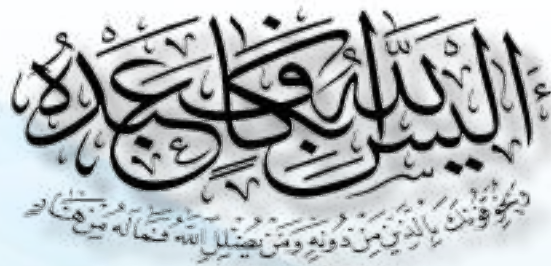 أَلَيْسَ اللَّهُ بِكَافٍ عَبْدَهُ
وَيُخَوِّفُونَكَ بِالَّذِينَ مِنْ دُونِهِ وَمَنْ يُضْلِلِ اللَّهُ فَمَا لَهُ مِنْ هَادٍ